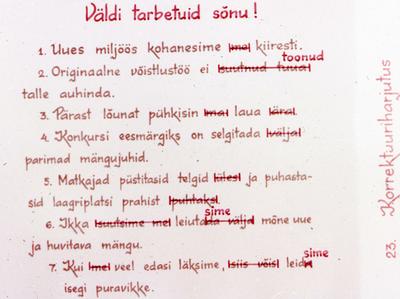 Väldi tarbetuid sõnu!
1. Uues miljöös kohanesime me kiiresti.
toonud
2. Originaalne võistlustöö ei suutnud tuua
talle auhinda.
3. Pärast lõunat pühkisin ma laua ära.
4. Konkursi eesmärgiks on selgitada välja
parimad mängujuhid.
5. Matkajad püstitasid telgid üles ja puhasta-
sid laagriplatsi prahist puhtaks.
sime
6. Ikka suutsime me leiutada välja mõne uue
ja huvitava mängu.
sime
7. Kui me veel edasi läksime, siis võisi leida
isegi puravikke.
23. Korrektuuriharjutus